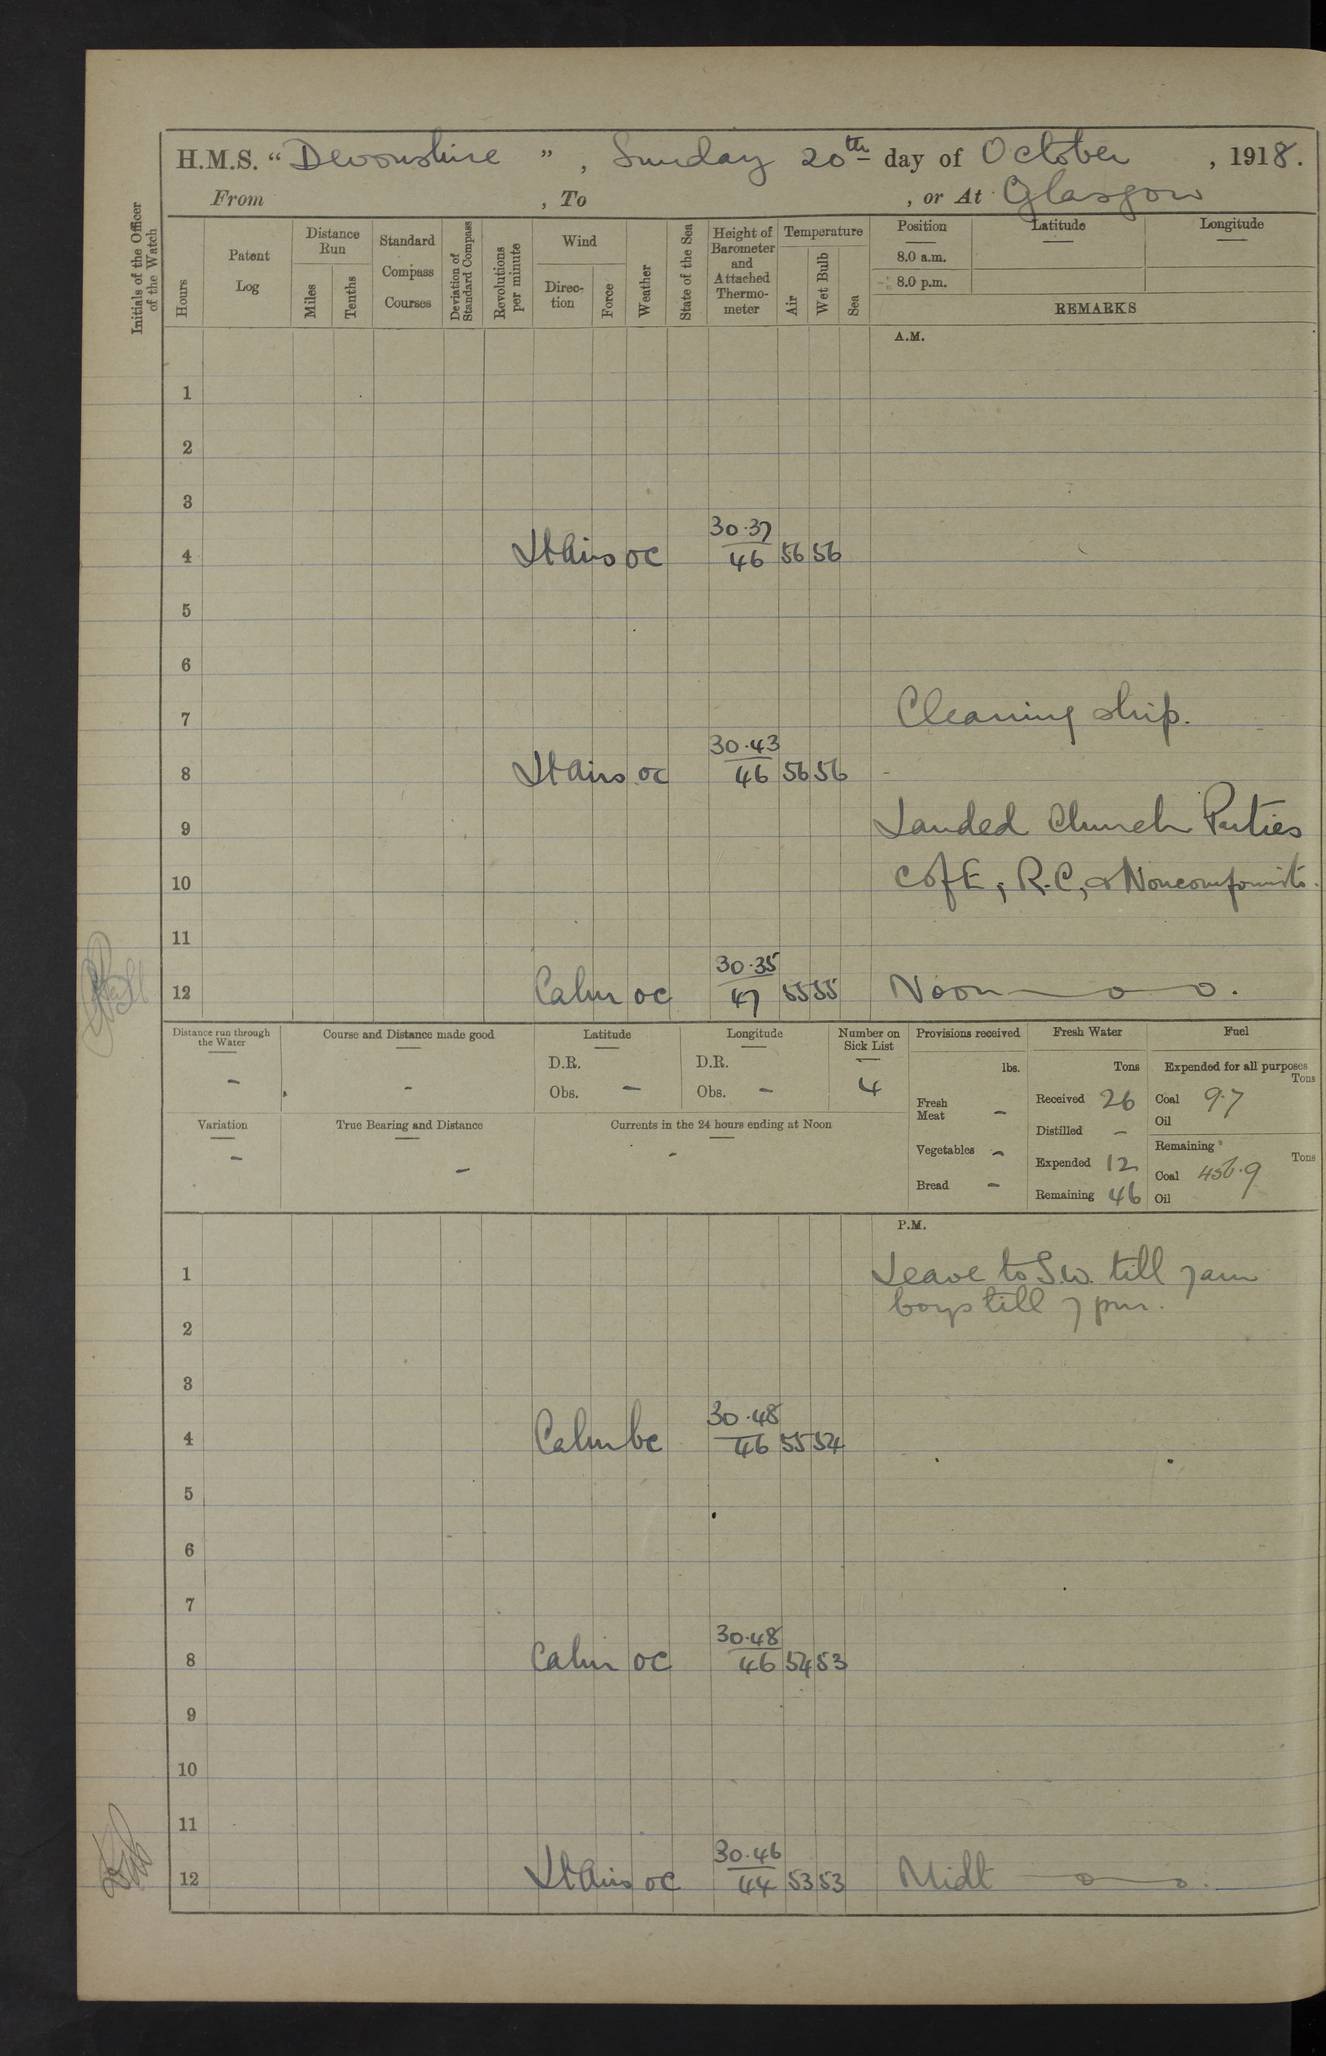 H.M.S. “ Devonshire ” , Sunday 20th day of October , 1918.
From , To , or At Glasgow
Initials of the Officer of the Watch
Hours
Patent Log
Distance Run
Miles
Tenths
Standard Compass Courses
Deviation of Standard Compass
Revolutions per minute
Wind
Direction
Force
Weather
State of the Sea
Height of Barometer and Attached Thermometer
Temperature
Air
Wet Bulb
Sea
Position Latitude Longitude
8.0 a.m.
8.0 p.m.
REMARKS
A.M.
1
2
3
4 Lt Airs oc 30.37/46 56 56
5
6
7 Cleaning ship.
8 Lt Airs oc 30.43/46 56 56 -
9 Landed Church Parties
10 C of E, R.C, & Nonconformists.
11
12 Calm oc 30.35/47 55 55 Noon
Distance run through the Water -
Course and Distance made good -
Latitude
D.R.
Obs. -
Longitude
D.R.
Obs. -
Number on Sick List
4
Variation -
True Bearing and Distance -
Currents in the 24 hours ending at Noon -
Provisions received
lbs.
Fresh Meat -
Vegetables -
Bread -
Fresh Water
Tons
Received 26
Distilled -
Expended 12
Remaining 46
Fuel
Expended for all purposes
Tons
Coal 9.7
Oil
Remaining
Tons
Coal 456.9
Oil
P.M.
1 Leave to S.W. till 7 am
boys till 7 pm.
2
3
4 Calm bc 30.48/46 55 54
5
6
7
8 Calm oc 30.48/46 54 53
9
10
11
12 Lt Airs oc 30.46/44 53 53 Midt